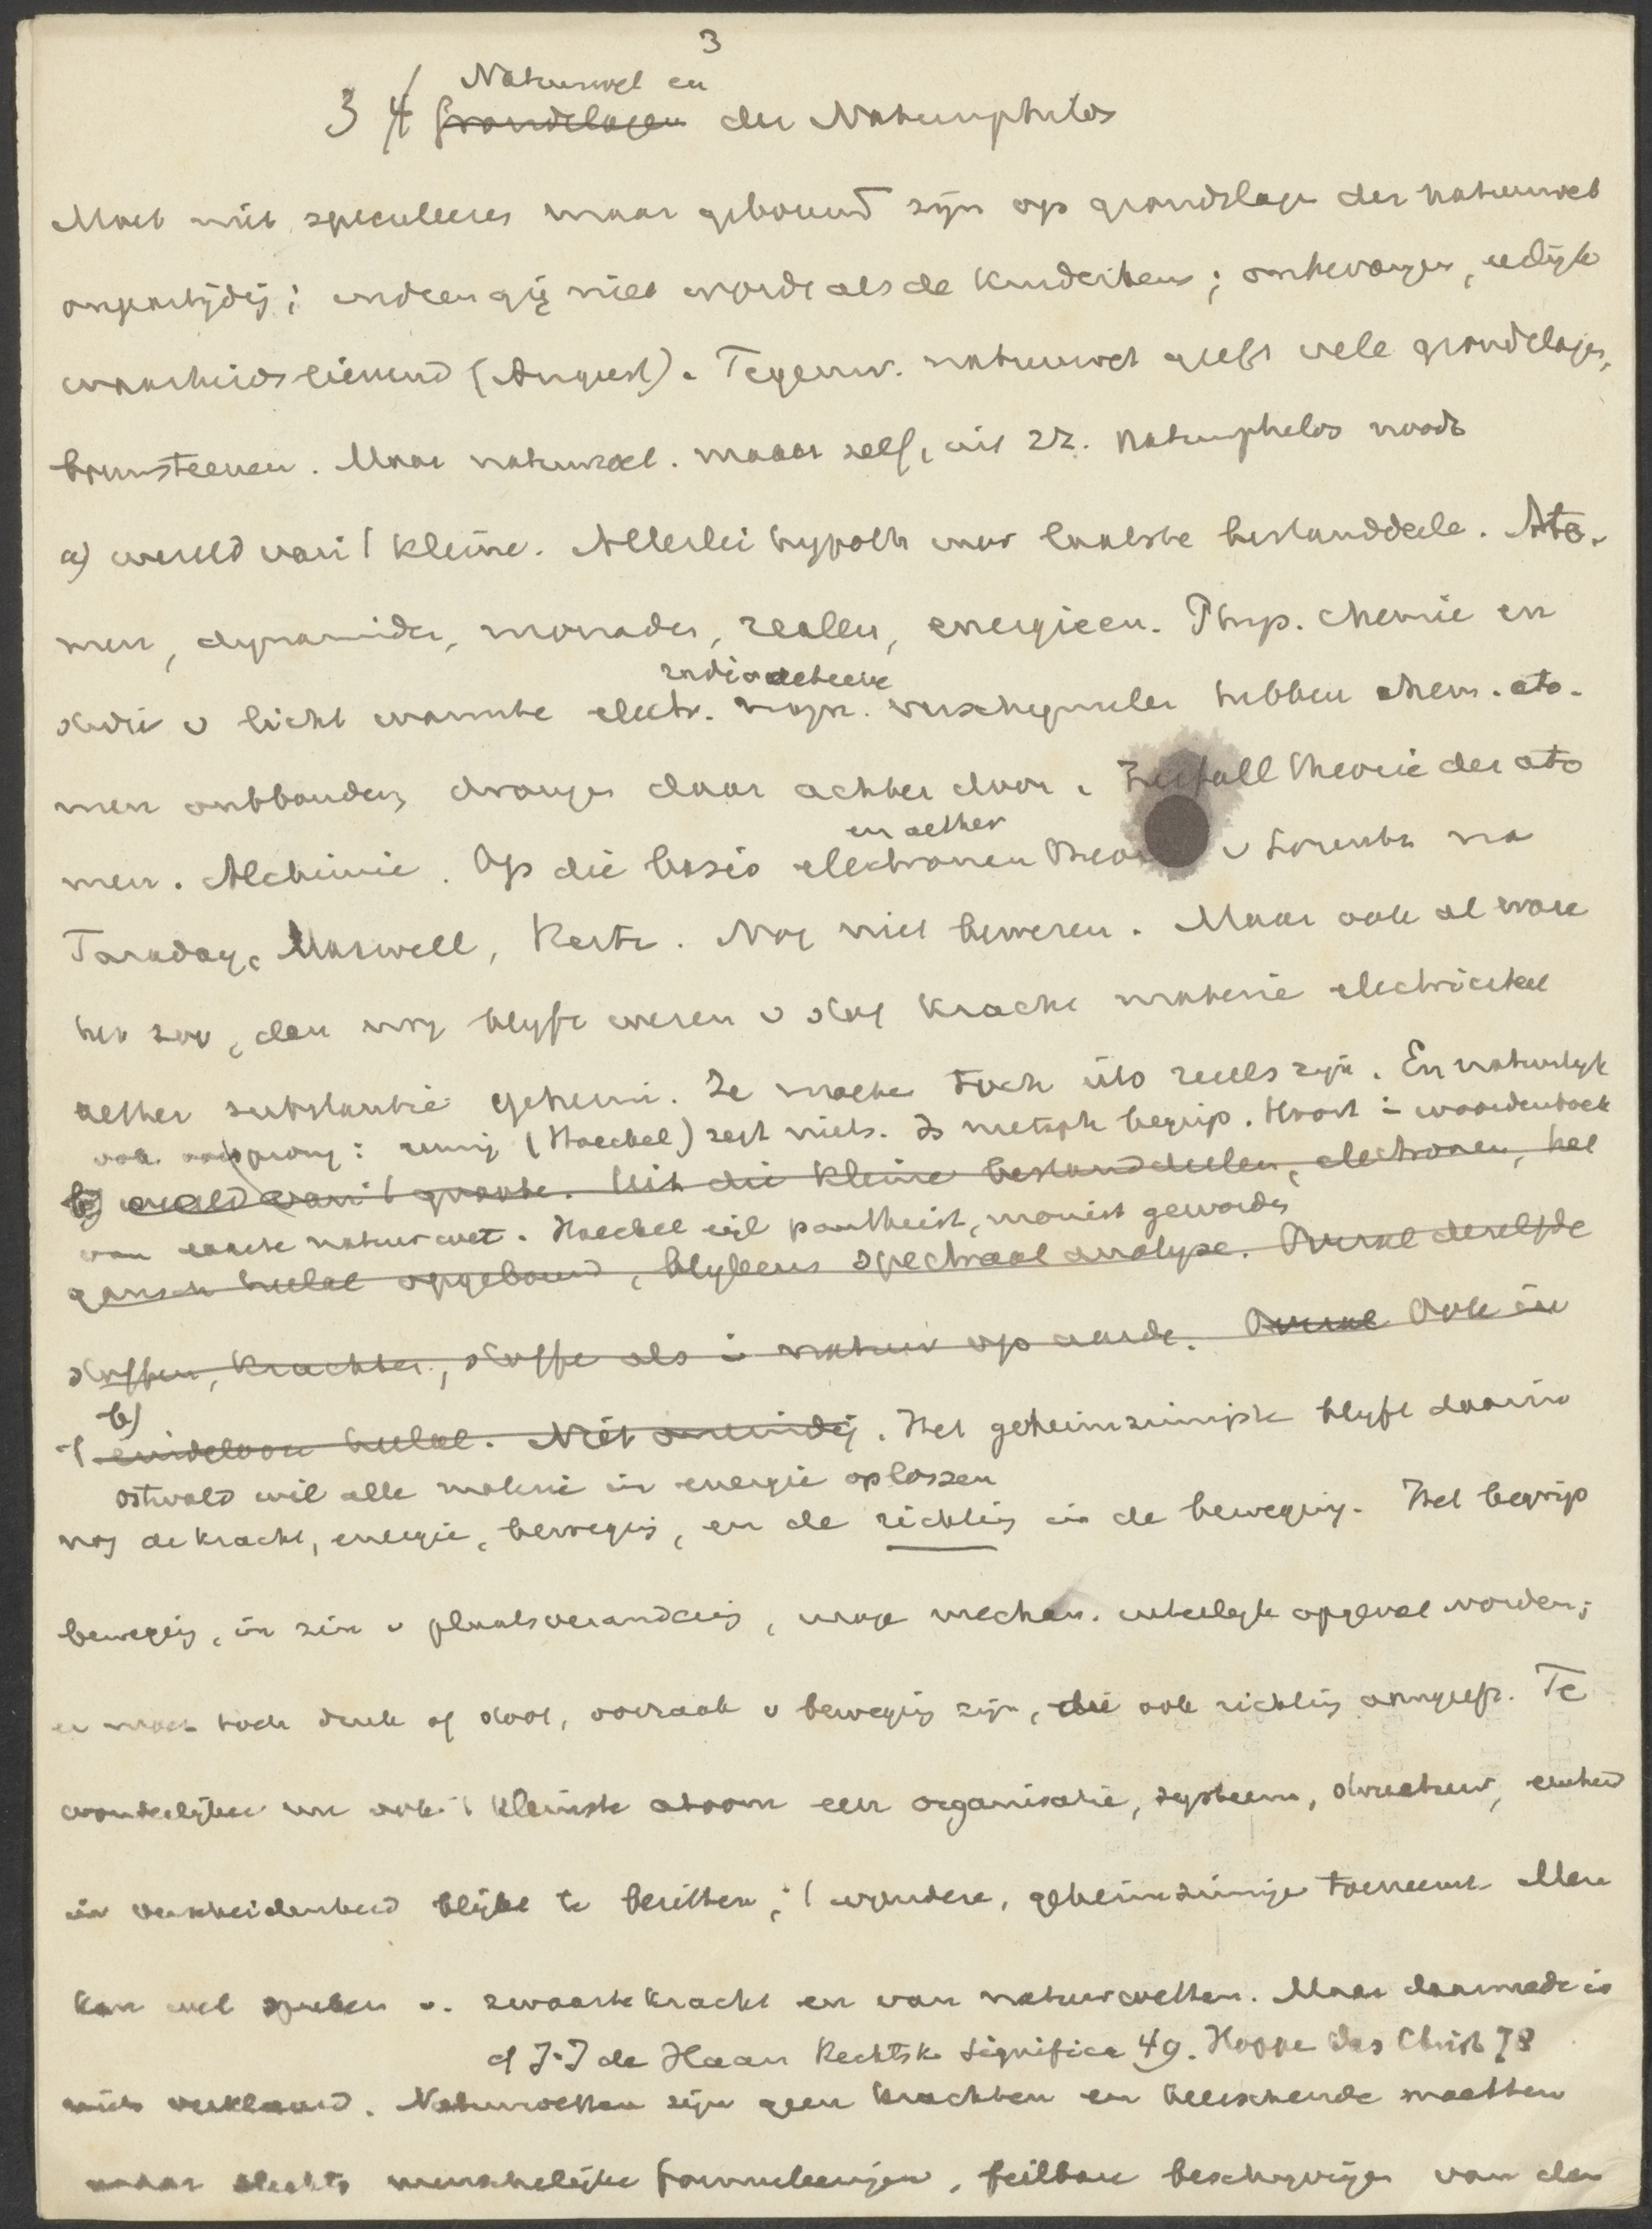 3
Natuurwet en
3 4 Grondslagen der Natuurphilos
Moet niet speculeeren maar gebouwd zijn op grondslagen der natuurwet
onpartijdig; indien gij niet wordt als de kinderkens; onbevangen, eerlijk
waarheidslievend (August). Tegenw. natuurwet geeft vele grondslagen,
bouwsteenen. Maar natuurwet. maar zelf, uit zz. natuurphilos noodz
a) wereld van 't kleine. Allerlei hypoth over laatste bestanddeele. Ato-
men, dynamiden, monaden, realen, energieen. Phys. chemie en
radioactieve
studie v licht warmte electr. magn. verschijnselen hebben chem. ato-
men ontbonden, drongen daar achter door. Zerfall theorie der ato
men. Alchimie. Op die basis electronen Theorie v Lorentz na
en aether
Faraday, Maxwell, Hertz. Nog niet bewezen. Maar ook al ware
het zoo, dan nog blijft wezen v stof kracht materie electriciteit
aether substantie geheim. Ze moeten toch iets reeels zijn. En natuurlijk
ook oorsprong: eeuwig (Haeckel) zegt niets. Is metaph begrip. Hoort in woordenboek
b) wereld van 't groote. Uit die kleine bestanddeelen, electronen, het
van exacte natuurwet. Haeckel zijl pantheist, monist geworden
gansch heelal opgebouwd, blijkens spectraal analyse. Overal dezelfde
stoffen, krachten, stoffe als in natuur op aarde. Overal Ook in
b)
't eindeloos heelal. Niet oneindig. Het geheimzinnigste blijft daarin
Ostwald wil alle materie in energie oplossen
nog de kracht, energie, beweging, en de richting in de beweging. Het begrip
beweging, in zin v plaatsverandering, moge mechan. uiterlijk opgevat worden;
er moet toch druk of stoot, oorzaak v beweging zijn, die ook richting aangeeft. Te
wonderlijker nu ook 't kleinste atoom een organisatie, systeem, structuur, eenheid
in verscheidenheid blijkt te bezitten; 't wondere, geheimzinnige toeneemt Men
kan wel spreken v. zwaartekracht en van natuurwetten. Maar daarmede is
cf J. I de Haan Rechtsk. Significa 49. Hoppe Das Christ 78
niets verklaard. Natuurwetten zijn geen krachten en heerschende machten
maar slechts menschelijke formuleeringen, feilbare beschrijvingen van den